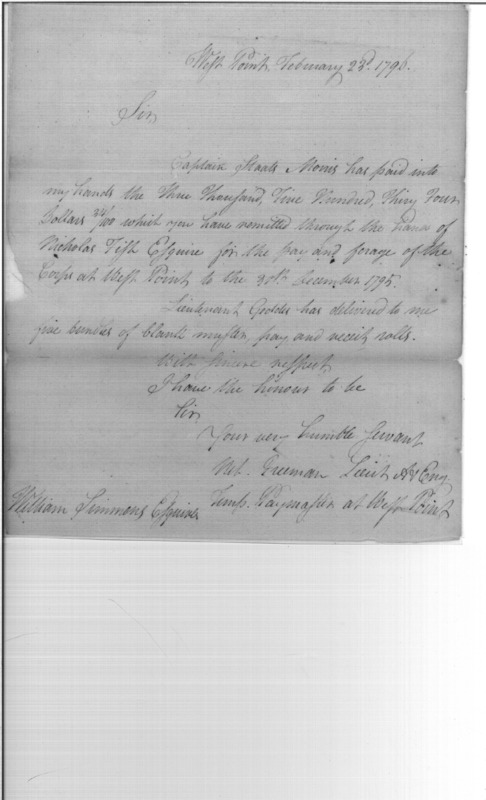 West Point February 23d. 1796.
Sir,
Captain Staats Morris has paid into
my hands the Three Thousand, Five Hundred, Thirty Four
Dollars 34/100 which you have remitted through the hands of
Nicholas Fish Esquire for the pay and forage of the
Corps at West Point to the 30th December 1795.
Lieutenant Geddes has delivered to me
five bundles of blank muster, pay and receit rolls.
With sincere respect,
I have the honour to be
Sir
Your very humble Servant
Net. Freeman Lieut A&Eng
William Simmons Esquire Temp. Paymaster at West Point